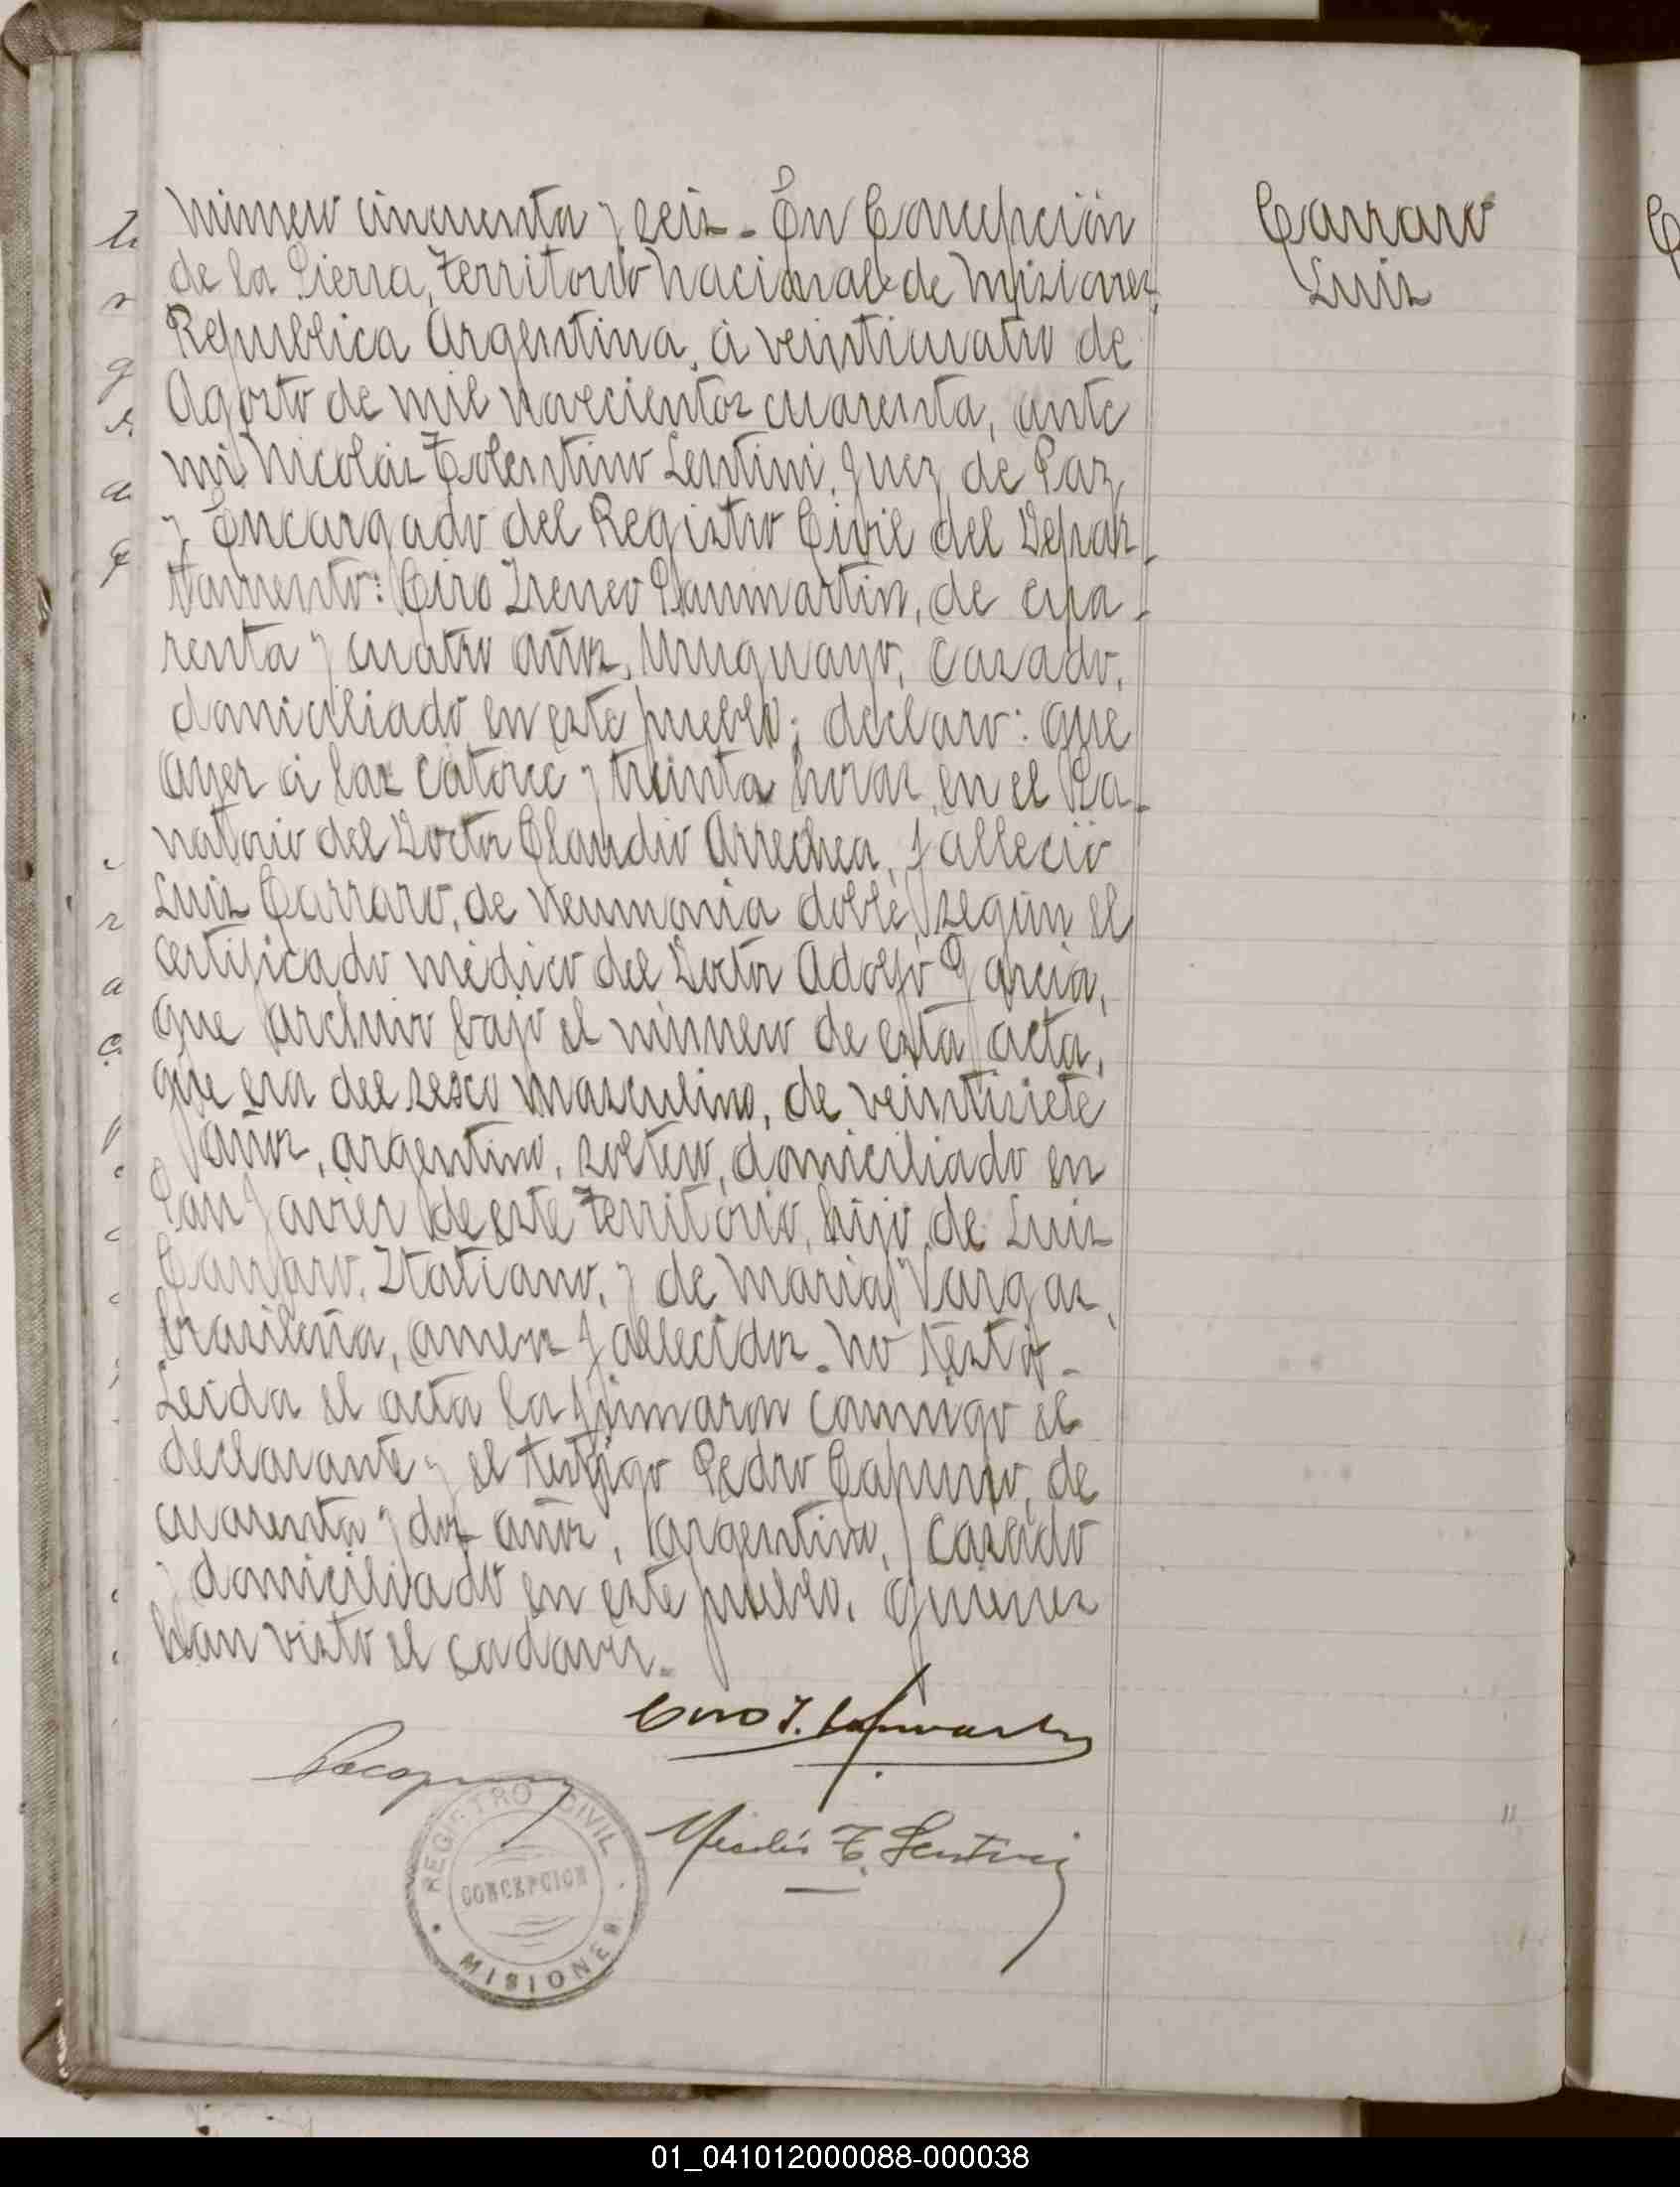 Número cincuenta y seis.- En Concepción
de la Sierra, Territorio Nacional de Misiones,
República Argentina, á veinticuatro de
Agosto de mil novecientos cuarenta, ante
mi Nicolás Tolentino Lentini, Juez de Paz
y Encargado del Registro Civil del Depar-
tamento: Ciro Ireneo Sanmartin, de cua-
renta y cuatro años, Uruguayo, casado,
domiciliado en este pueblo; declaro: que
ayer á las catorce y treinta horas, en el Sa-
natorio del Doctor Claudio Arrechea, falleció
Luis Carraro, de neumonia doble, según el
certificado médico del Doctor Adolfo Garcia,
que archivo bajo el número de esta acta,
que era del sexo masculino, de veintisiete
años, argentino, soltero, domiciliado en
San Javier de este Territorio, hijo de Luis
Carraro, Italiano, y de Maria Vargas,
brasileña, ambos fallecidos. No testó.-
Leida el acta la firmaron conmigo el
declarante y el testigo Pedro Capurro, de
cuarenta y dos años, argentino, casado
y domiciliado en este pueblo, quienes
han visto el cadáver.-
Carraro
Luis
Ciro I. Sanmartin
Nicolás T. Lentini
REGISTRO CIVIL
CONCEPCION
MISIONES
01_041012000088-000038